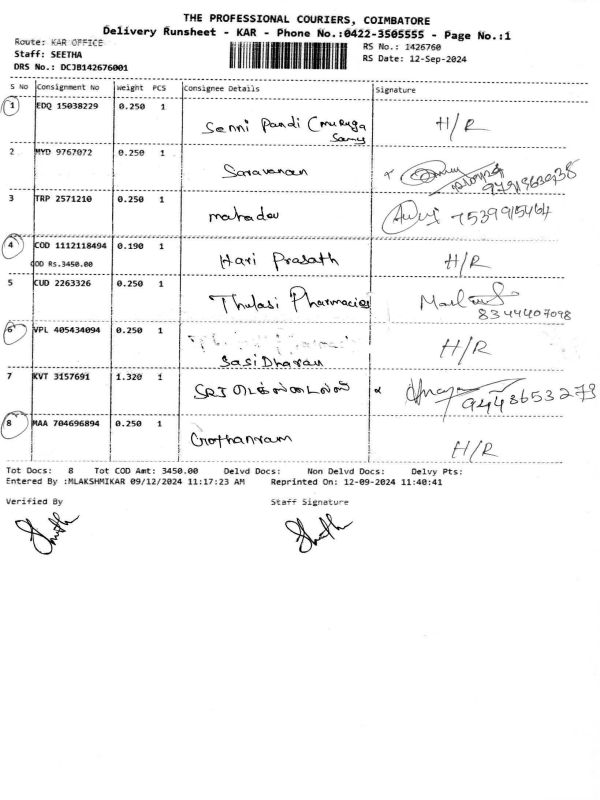 THE PROFESSIONAL COURIERS, COIMBATORE
Delivery Runsheet - KAR - Phone No.:0422-3505555 - Page No.:1
Route: KAR OFFICE
RS No.: 1426760
Staff: SEETHA
RS Date: 12-Sep-2024
DRS No.: DCJB142676001
S No Consignment No Weight PCS Consignee Details Signature
1 EDQ 15038229 0.250 1 Senni Pandi (Muruga Samy H/R
2 MYD 9767072 0.250 1 Saravanan
3 TRP 2571210 0.250 1 mahadev 7539915464
4 COD 1112118494 0.190 1 Hari Prasath H/R
COD Rs.3450.00
5 CUD 2263326 0.250 1 Thulasi Pharmacies
8344407098
6 VPL 405434094 0.250 1 SasiDharan H/R
7 KVT 3157691 1.320 1 SRJ
8 MAA 704696894 0.250 1 Gothanram H/R
Tot Docs: 8 Tot COD Amt: 3450.00 Delvd Docs: Non Delvd Docs: Delvy Pts:
Entered By :MLAKSHMIKAR 09/12/2024 11:17:23 AM Reprinted On: 12-09-2024 11:40:41
Verified By Staff Signature